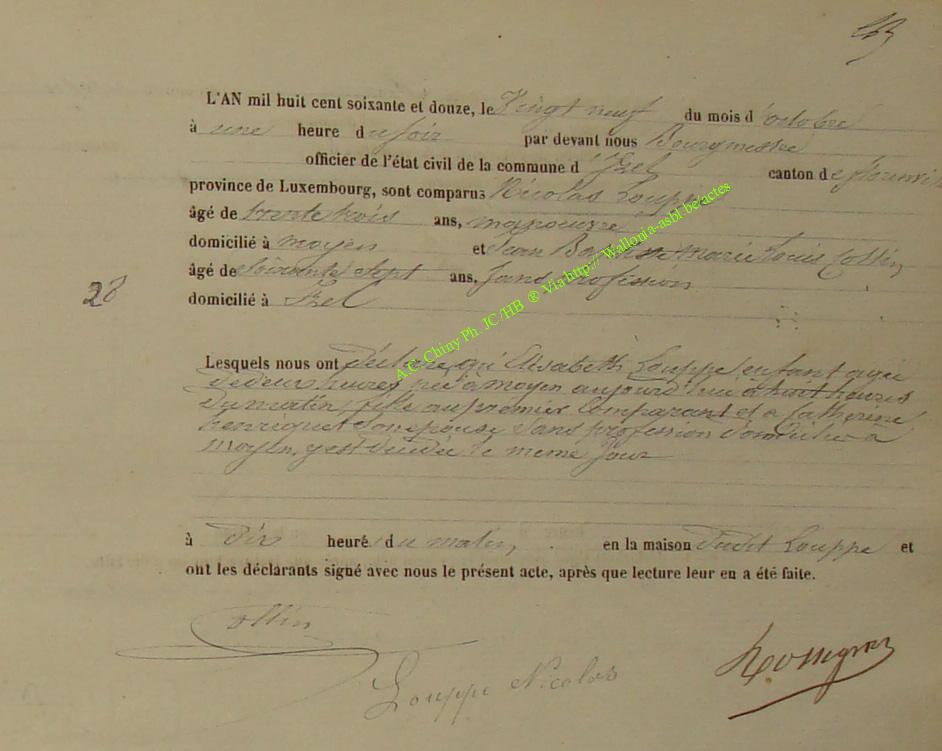 L'AN mil huit cent soixante et douze, le Vingt neuf du mois d'octobre
à une heure du soir par devant nous Bourgmestre
officier de l'état civil de la commune d'Izel canton de florenville
province de Luxembourg, sont comparus Nicolas Louppe
âgé de trente trois ans, manoeuvre
domicilié à moyen et Jean Baptiste Marie Louis Collin
âgé de Soixante Sept ans, Sans profession
domicilié à Izel
28
Lesquels nous ont déclaré qu'Elisabeth Louppe enfant agée
de deux heures, née à moyen aujourd'hui à huit heures
du matin, fille au premier Comparant et a Catherine
henriquet Son epouse, Sans profession domiciliée à
moyen, y est décédée le meme jour
à dix heure du matin, en la maison dudit Louppe et
ont les déclarants signé avec nous le présent acte, après que lecture leur en a été faite.
Collin
Louppe Nicolas
A.C. Chiny Ph. JC/HB ® Via http:// Wallonia-asbl be/actes